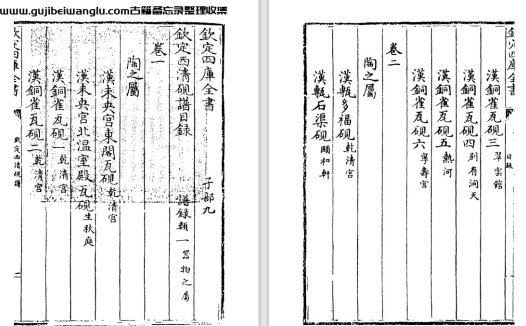 www.gujibeiwanglu.com古籍备忘录整理收集
欽定四庫全書
子部九
欽定西清硯譜目錄
譜録類一器物之屬
卷一
陶之屬
漢未央宮東閣瓦硯乾清宮
漢未央宮北溫室殿瓦硯生秋庭
漢銅雀瓦硯一乾清宮
漢銅雀瓦硯二乾清宮
欽定四庫全書
欽定西清硯譜
漢銅雀瓦硯三翠雲館
漢銅雀瓦硯四別有洞天
漢銅雀瓦硯五熱河
漢銅雀瓦硯六寧壽宮
卷二
陶之屬
漢甎多福硯乾清宮
漢甎石渠硯頤和軒
欽定四庫全書
目錄